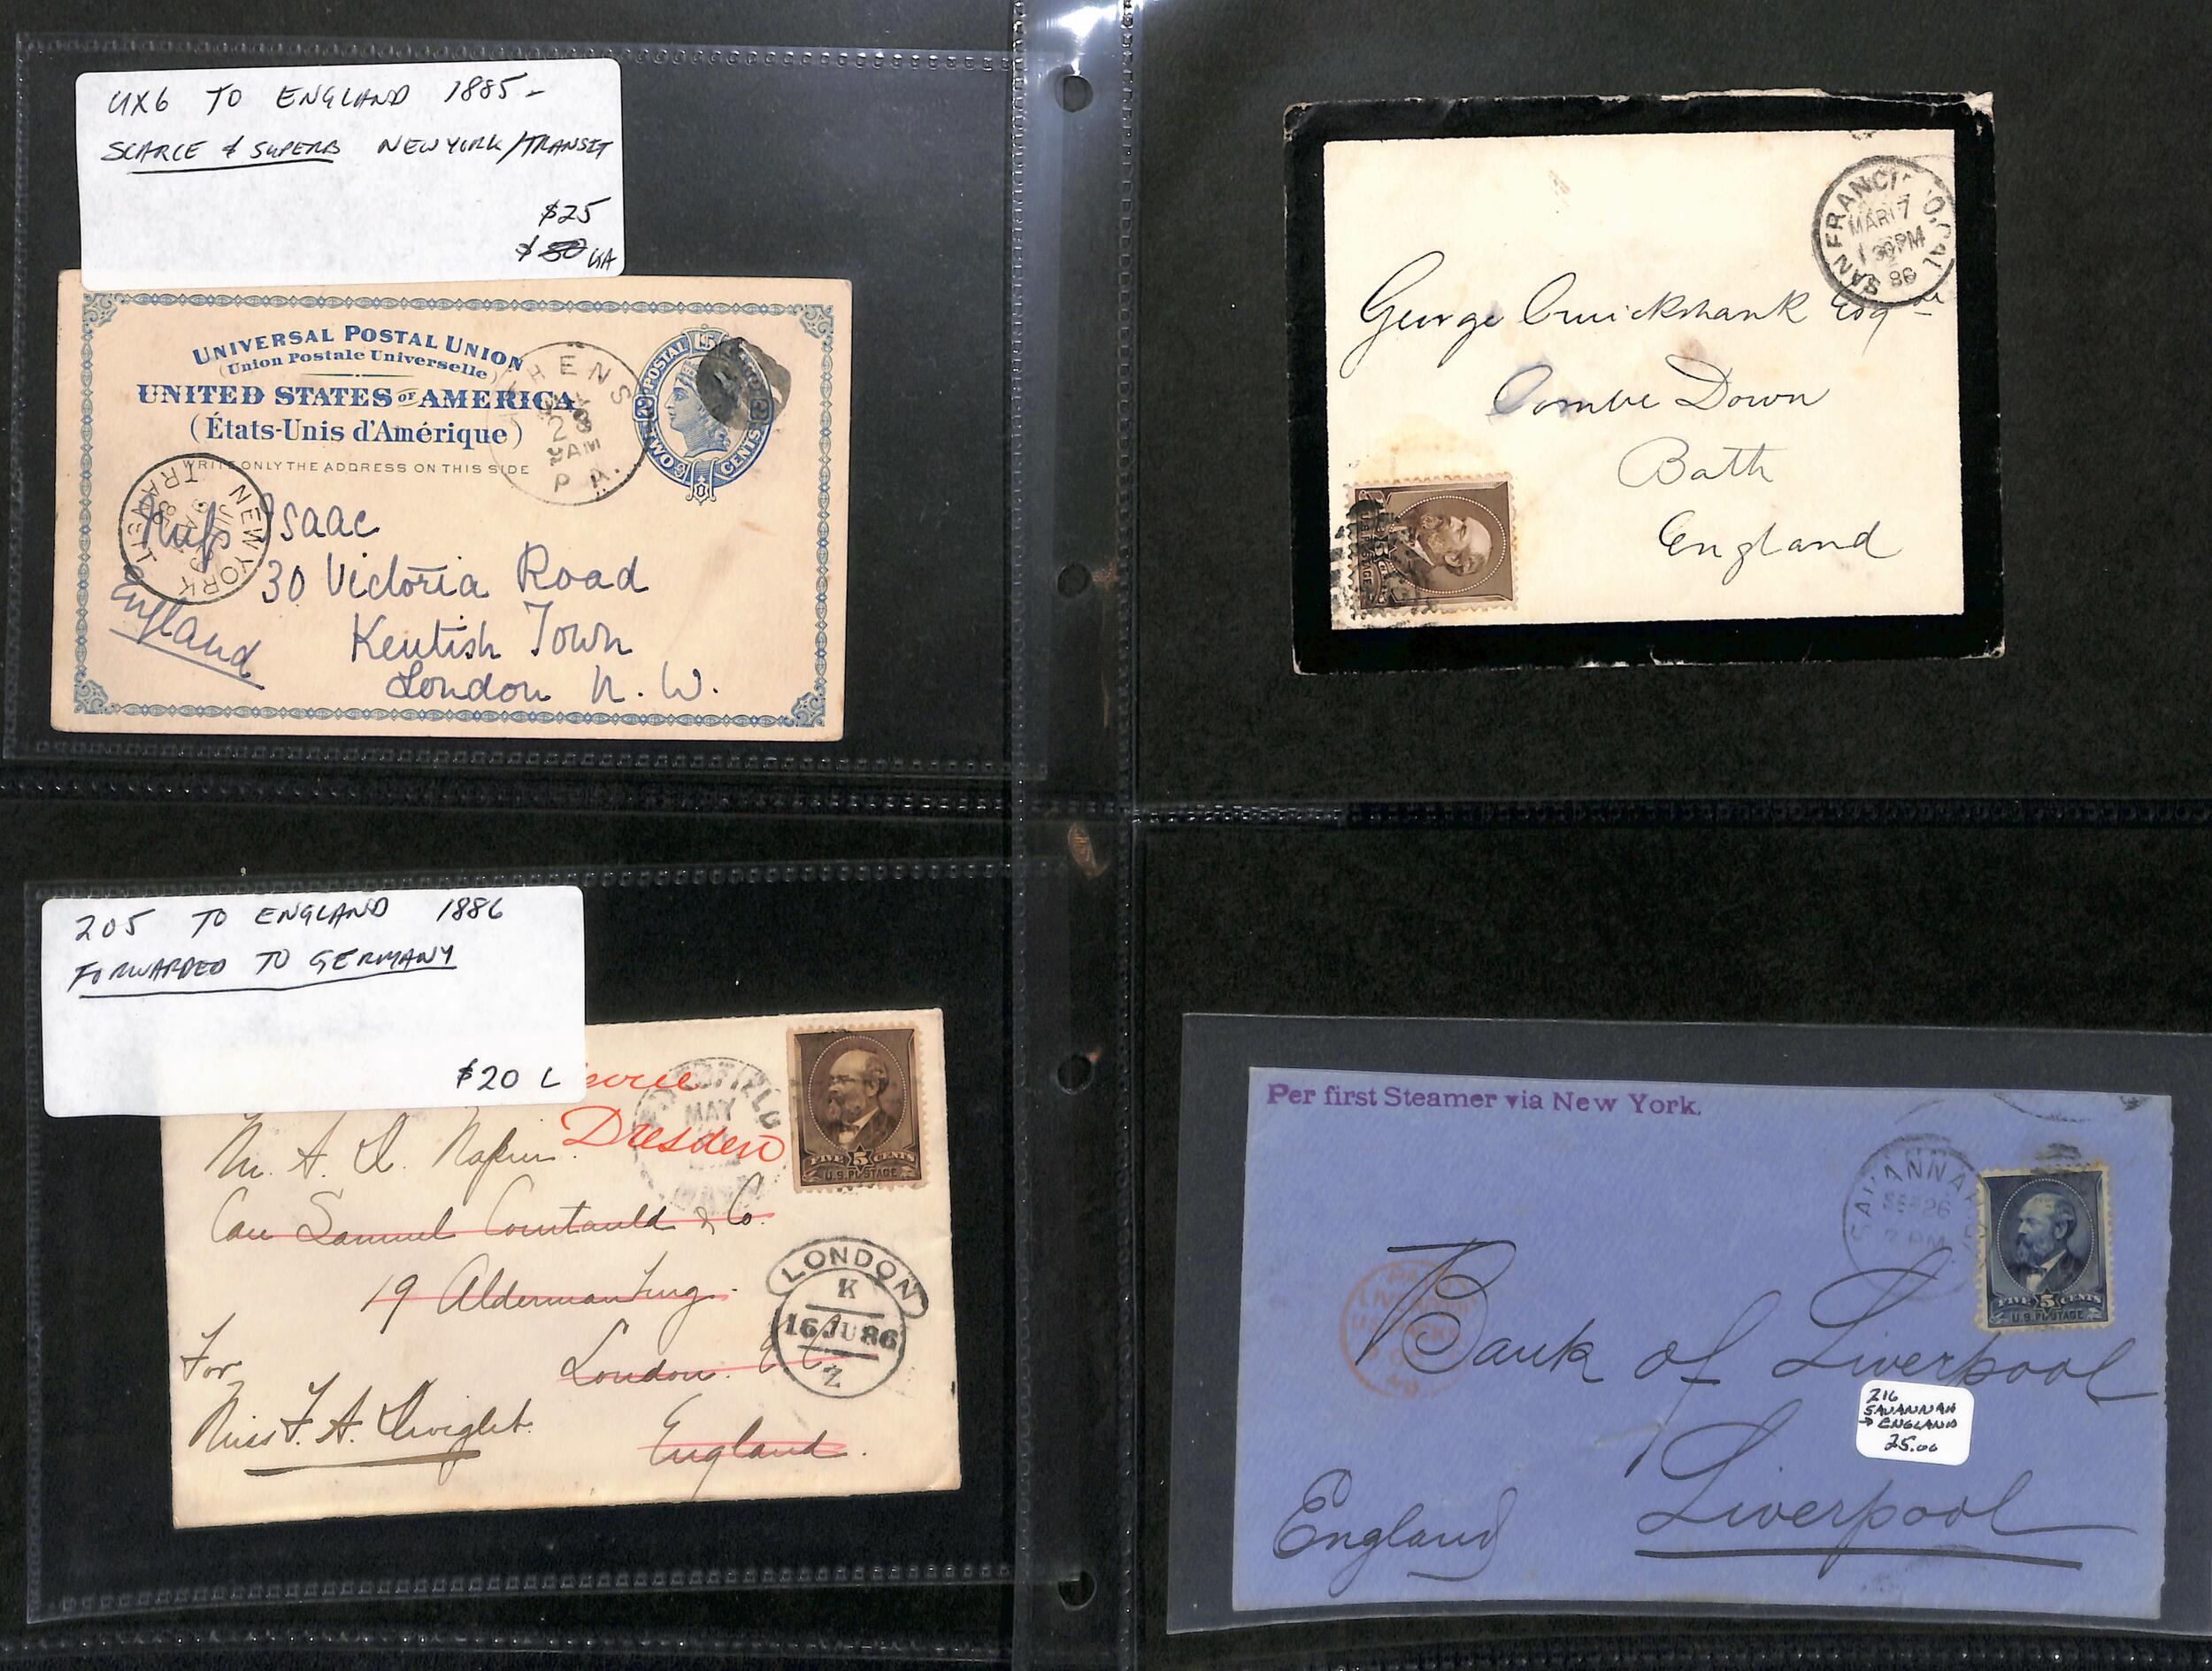 UX6 TO ENGLAND 1885-
SCARCE & SUPERB NEW YORK/TRANSIT
$25
$50
UNIVERSAL POSTAL UNION
(Union Postale Universelle)
UNITED STATES OF AMERICA
(États-Unis d'Amérique)
WRITE ONLY THE ADDRESS ON THIS SIDE
POSTAL CARD
TWO CENTS
2 2
THENS
28
AM
P A.
NEW YORK
TRANSIT
Isaac
30 Victoria Road
Kentish Town
London N. W.
England
SAN FRANCI O, CAL
MAR 17
1 30 PM
86
George Cruickshank Esqre
Combe Down
Bath
England
5
POSTAGE
205 TO ENGLAND 1886
FORWARDED TO GERMANY
$20 L
Dresden
MAY
FIVE 5 CENTS
U.S. POSTAGE
A. D. Napier
Care Samuel Courtauld & Co.
19 Aldermanbury
London. E C
England.
For
Miss F. A. Dwight.
LONDON
K
16 JU 86
Z
Per first Steamer via New York.
SAVANNAH
SEP 26
PM
FIVE 5 CENTS
U.S. POSTAGE
LIVERPOOL
Bank of Liverpool
Liverpool
England
216
SAVANNAH
→ ENGLAND
25.00